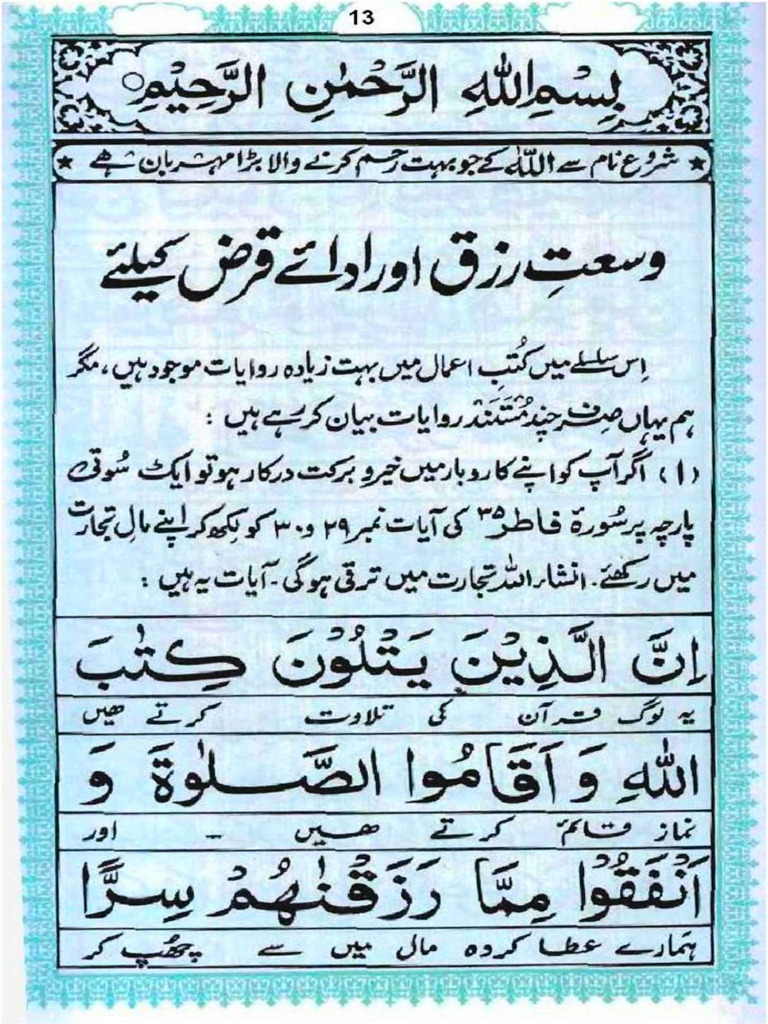 13
بِسْمِ اللهِ الرَّحْمٰنِ الرَّحِيْمِ○
★ شروع نام سے اللہ کے جو بہت رحم کرنے والا بڑا مہربان ہے ★
وسعتِ رزق اور ادائے قرض کیلئے
اِس سلسلے میں کُتبِ اعمال میں بہت زیادہ روایات موجود ہیں، مگر
ہم یہاں صرف چند مُستَنَد روایات بیان کر رہے ہیں :
(۱) اگر آپ کو اپنے کاروبار میں خیر و برکت درکار ہو تو ایک سُوتی
پارچہ پر سُورۂ فاطر ۳۵ کی آیات نمبر ۲۹ و ۳۰ کو لکھ کر اپنے مال تجارت
میں رکھئے۔ انشاء اللہ تجارت میں ترقی ہوگی۔ آیات یہ ہیں :
اِنَّ الَّذِيْنَ يَتْلُوْنَ كِتٰبَ
یہ لوگ قرآن کی تلاوت کرتے ہیں
اللهِ وَ اَقَامُوا الصَّلٰوةَ وَ
نماز قائم کرتے ہیں ۔ اور
اَنْفَقُوْا مِمَّا رَزَقْنٰهُمْ سِرًّا
ہمارے عطا کردہ مال میں سے چھُپ کر